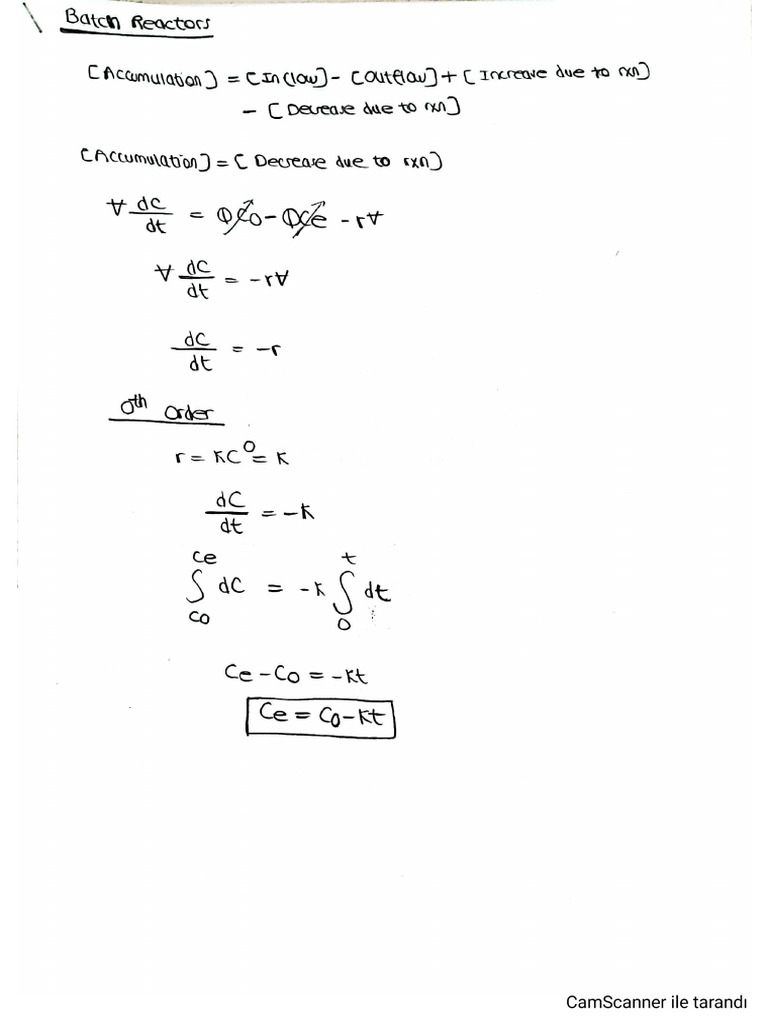 Batch Reactors
[Accumulation] = [Inflow] - [Outflow] + [Increase due to rxn]
- [Decrease due to rxn]
[Accumulation] = [Decrease due to rxn]
∀ dC/dt = QC₀ - QCe - r∀
∀ dC/dt = -r∀
dC/dt = -r
0th Order
r = KC⁰ = K
dC/dt = -K
∫_{C₀}^{Ce} dC = -K ∫_{0}^{t} dt
Ce - C₀ = -Kt
Ce = C₀ - Kt
CamScanner ile tarandı